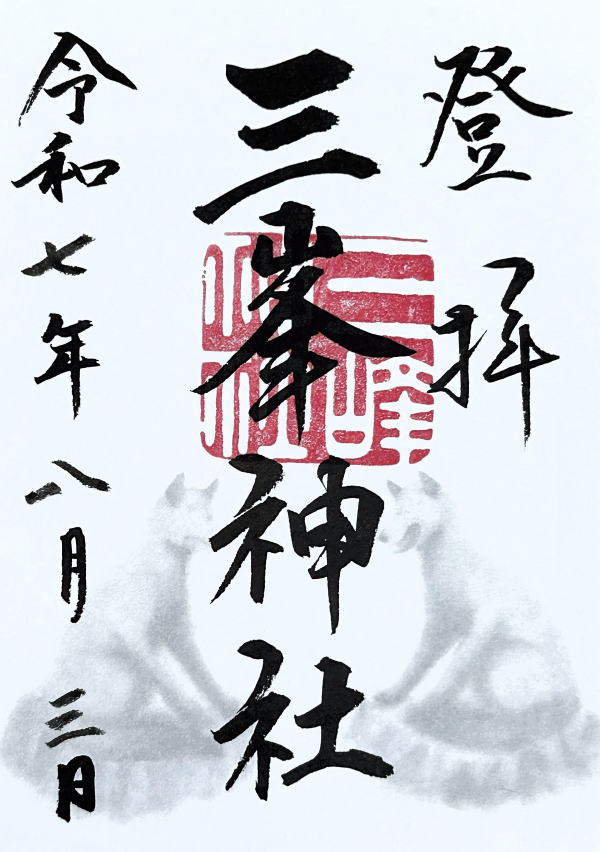 登拝
三峯神社
三峰神社
令和七年八月三日